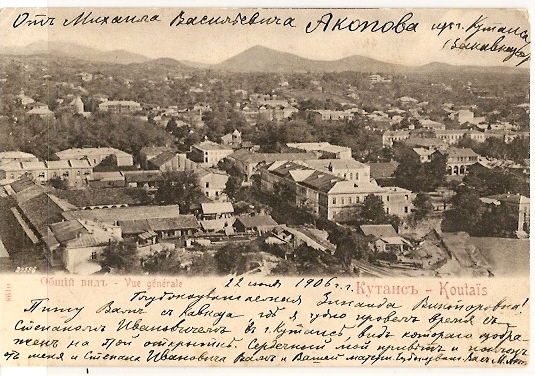 Отъ Михаила Васильевича Акопова изъ г. Кутаиса
(Закавказ.)
21556
Общій видъ. - Vue générale
Кутаисъ - Koutaïs
22 июня 1906 г.
Глубокоуважаемая Зинаида Викторовна!
Пишу Вамъ съ Кавказа, гдѣ я чудно провелъ время съ
Степаномъ Ивановичемъ въ г. Кутаисѣ, видъ котораго изобра-
женъ на этой открыткѣ. Сердечный мой привѣтъ и поклонъ
отъ меня и Степана Ивановича Вамъ и Вашей матери. Глубокоуваж. Васъ М. Ак